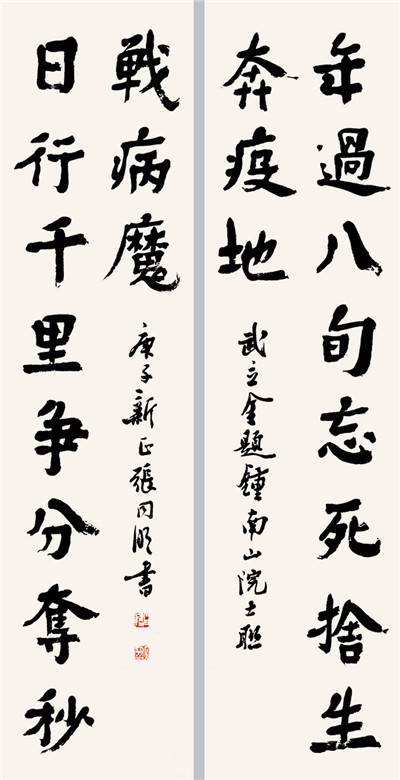 年過八旬忘死捨生
奔疫地
武立金題鍾南山院士聯
日行千里争分奪秒
戦病魔
庚子新正張同書